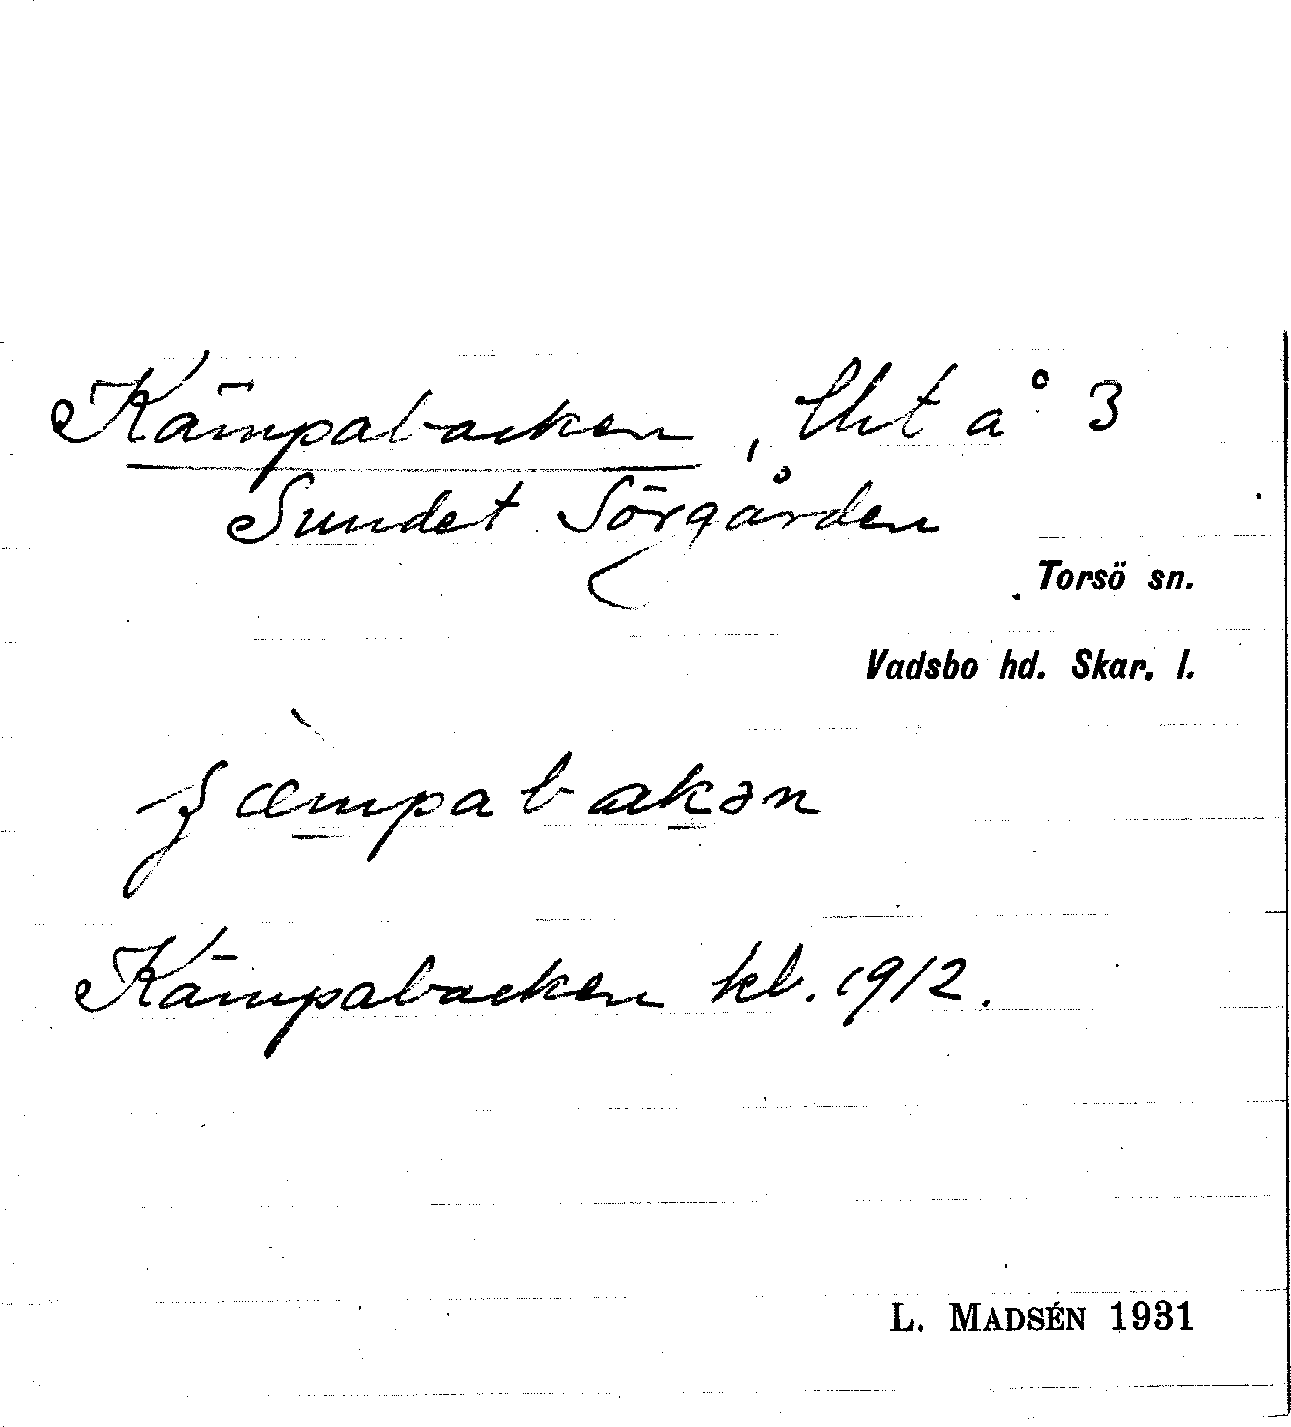 Kämpabacken, lht å 3
Sundet Sörgården
Torsö sn.
Vadsbo hd. Skar. l.
Kämpabacken kl. 1912.
L. MADSÉN 1931